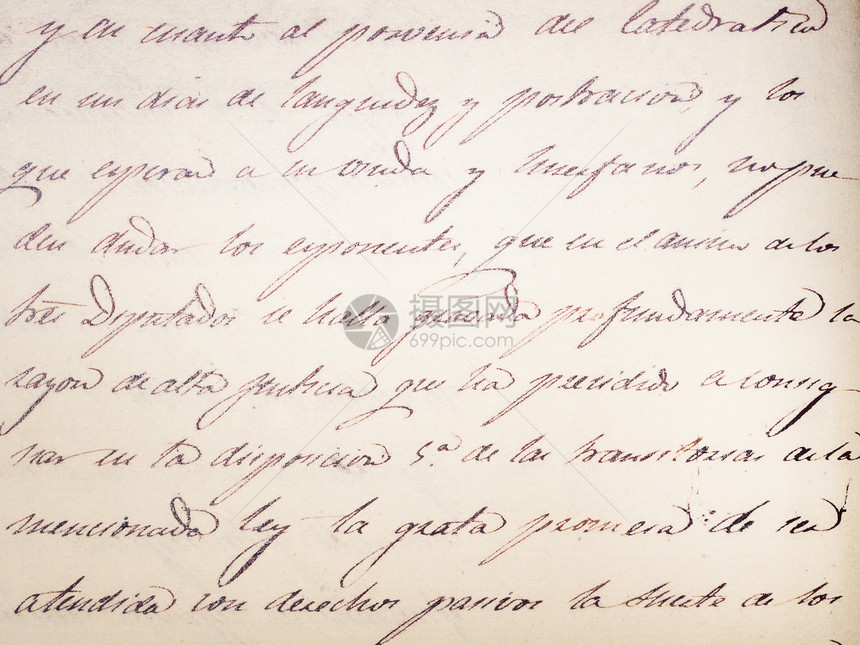 y en cuanto al porvenir del Catedratico
en sus dias de languidez y postracion, y los
que esperan a su viuda y huerfanos, no pue
den dudar los exponentes, que en el animo de los
tres Diputados se halla gravada profundamente la
razon de alta justicia que ha presidido a consig
nar en la disposicion 5.ª de las transitorias de la
mencionada ley la grata promesa de ser
atendida con derechos pasivos la suerte de los
摄图网
699pic.com